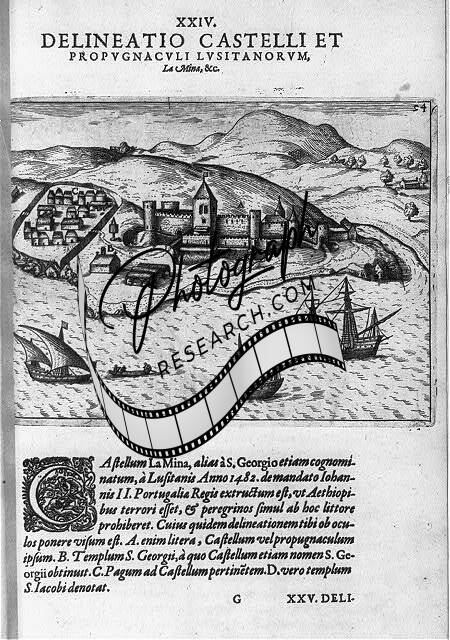 XXIV.
DELINEATIO CASTELLI ET
PROPVGNACVLI LVSITANORVM,
La Mina, &c.
54
C
Photograph
RESEARCH.COM
CAstellum La Mina, alias à S. Georgio etiam cognomi-
natum, à Lusitanis Anno 1482. demandato Iohan-
nis II. Portugaliæ Regis extructum est, vt Aethiopi-
bus terrori esset, & peregrinos simul ab hoc littore
prohiberet. Cuius quidem delineationem tibi ob ocu-
los ponere visum est. A. enim litera, Castellum vel propugnaculum
ipsum. B. Templum S. Georgii, à quo Castellum etiam nomen S. Ge-
orgii obtinuit. C. Pagum ad Castellum pertinẽtem. D. vero templum
S. Iacobi denotat.
G XXV. DELI-